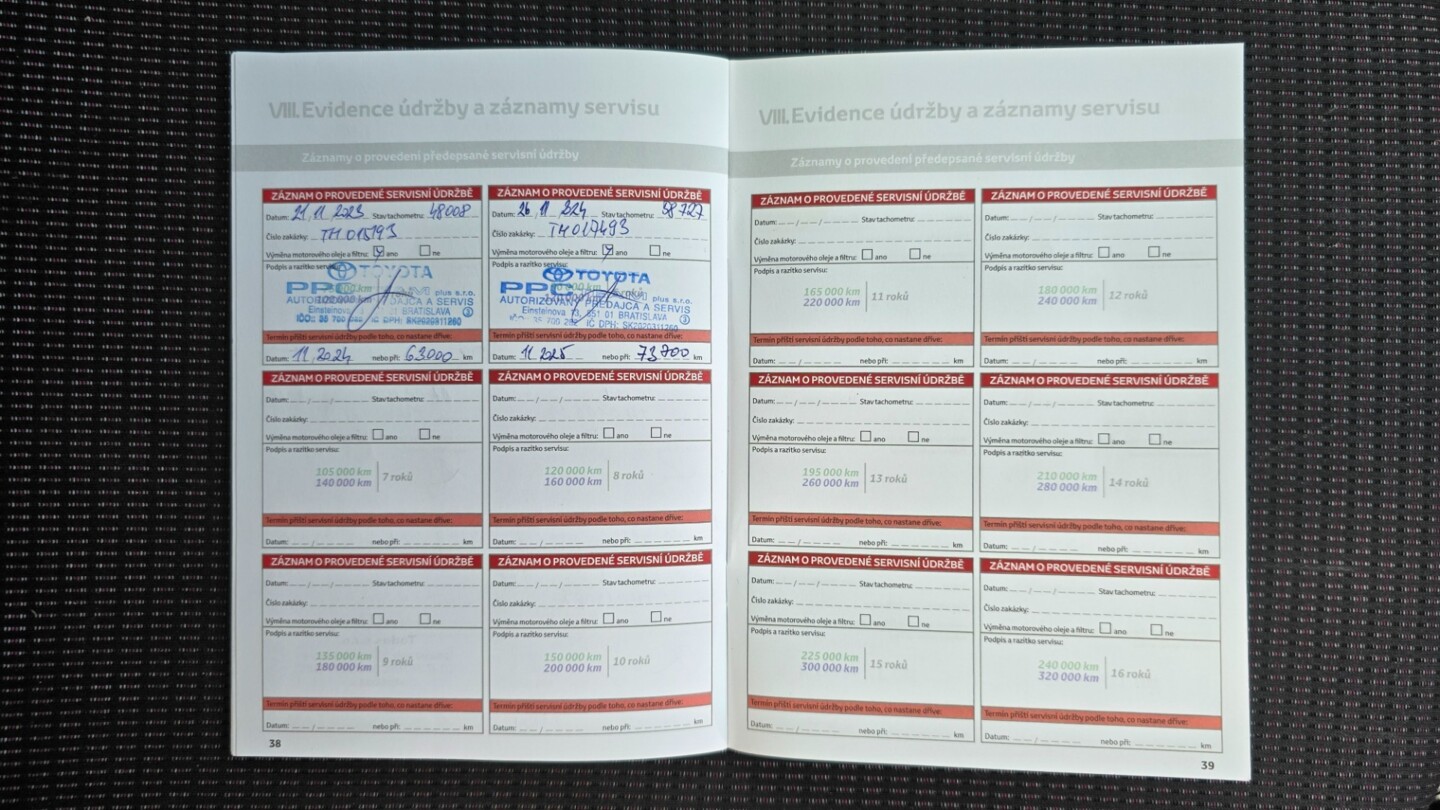 VIII. Evidence údržby a záznamy servisu
Záznamy o provedení předepsané servisní údržby
ZÁZNAM O PROVEDENÉ SERVISNÍ ÚDRŽBĚ
Datum: 21.11.2023 Stav tachometru: 48008
Číslo zakázky: TM015193
Výměna motorového oleje a filtru: ano ne
Podpis a razítko servisu:
TOYOTA
PPC plus s.r.o.
AUTORIZOVANÝ PREDAJCA A SERVIS
Einsteinova BRATISLAVA 3
IČO: 35 700 262 IČ DPH: SK2020311260
Termín příští servisní údržby podle toho, co nastane dříve:
Datum: 11.2024 nebo při: 63000 km
ZÁZNAM O PROVEDENÉ SERVISNÍ ÚDRŽBĚ
Datum: 26 / 11 / 2024 Stav tachometru: 58727
Číslo zakázky: TM017493
Výměna motorového oleje a filtru: ano ne
Podpis a razítko servisu:
TOYOTA
PPC plus s.r.o.
AUTORIZOVANÝ PREDAJCA A SERVIS
Einsteinova 851 01 BRATISLAVA 3
35 700 262 IČ DPH: SK2020311260
Termín příští servisní údržby podle toho, co nastane dříve:
Datum: 11.2025 nebo při: 73700 km
ZÁZNAM O PROVEDENÉ SERVISNÍ ÚDRŽBĚ
Datum: / / Stav tachometru:
Číslo zakázky:
Výměna motorového oleje a filtru: ano ne
Podpis a razítko servisu:
105 000 km
140 000 km
7 roků
Termín příští servisní údržby podle toho, co nastane dříve:
Datum: / nebo při: km
ZÁZNAM O PROVEDENÉ SERVISNÍ ÚDRŽBĚ
Datum: / / Stav tachometru:
Číslo zakázky:
Výměna motorového oleje a filtru: ano ne
Podpis a razítko servisu:
120 000 km
160 000 km
8 roků
Termín příští servisní údržby podle toho, co nastane dříve:
Datum: / nebo při: km
ZÁZNAM O PROVEDENÉ SERVISNÍ ÚDRŽBĚ
Datum: / / Stav tachometru:
Číslo zakázky:
Výměna motorového oleje a filtru: ano ne
Podpis a razítko servisu:
135 000 km
180 000 km
9 roků
Termín příští servisní údržby podle toho, co nastane dříve:
Datum: / nebo při: km
ZÁZNAM O PROVEDENÉ SERVISNÍ ÚDRŽBĚ
Datum: / / Stav tachometru:
Číslo zakázky:
Výměna motorového oleje a filtru: ano ne
Podpis a razítko servisu:
150 000 km
200 000 km
10 roků
Termín příští servisní údržby podle toho, co nastane dříve:
Datum: / nebo při: km
38
VIII. Evidence údržby a záznamy servisu
Záznamy o provedení předepsané servisní údržby
ZÁZNAM O PROVEDENÉ SERVISNÍ ÚDRŽBĚ
Datum: / / Stav tachometru:
Číslo zakázky:
Výměna motorového oleje a filtru: ano ne
Podpis a razítko servisu:
165 000 km
220 000 km
11 roků
Termín příští servisní údržby podle toho, co nastane dříve:
Datum: / nebo při: km
ZÁZNAM O PROVEDENÉ SERVISNÍ ÚDRŽBĚ
Datum: / / Stav tachometru:
Číslo zakázky:
Výměna motorového oleje a filtru: ano ne
Podpis a razítko servisu:
180 000 km
240 000 km
12 roků
Termín příští servisní údržby podle toho, co nastane dříve:
Datum: / nebo při: km
ZÁZNAM O PROVEDENÉ SERVISNÍ ÚDRŽBĚ
Datum: / / Stav tachometru:
Číslo zakázky:
Výměna motorového oleje a filtru: ano ne
Podpis a razítko servisu:
195 000 km
260 000 km
13 roků
Termín příští servisní údržby podle toho, co nastane dříve:
Datum: / nebo při: km
ZÁZNAM O PROVEDENÉ SERVISNÍ ÚDRŽBĚ
Datum: / / Stav tachometru:
Číslo zakázky:
Výměna motorového oleje a filtru: ano ne
Podpis a razítko servisu:
210 000 km
280 000 km
14 roků
Termín příští servisní údržby podle toho, co nastane dříve:
Datum: / nebo při: km
ZÁZNAM O PROVEDENÉ SERVISNÍ ÚDRŽBĚ
Datum: / / Stav tachometru:
Číslo zakázky:
Výměna motorového oleje a filtru: ano ne
Podpis a razítko servisu:
225 000 km
300 000 km
15 roků
Termín příští servisní údržby podle toho, co nastane dříve:
Datum: / nebo při: km
ZÁZNAM O PROVEDENÉ SERVISNÍ ÚDRŽBĚ
Datum: / / Stav tachometru:
Číslo zakázky:
Výměna motorového oleje a filtru: ano ne
Podpis a razítko servisu:
240 000 km
320 000 km
16 roků
Termín příští servisní údržby podle toho, co nastane dříve:
Datum: / nebo při: km
39